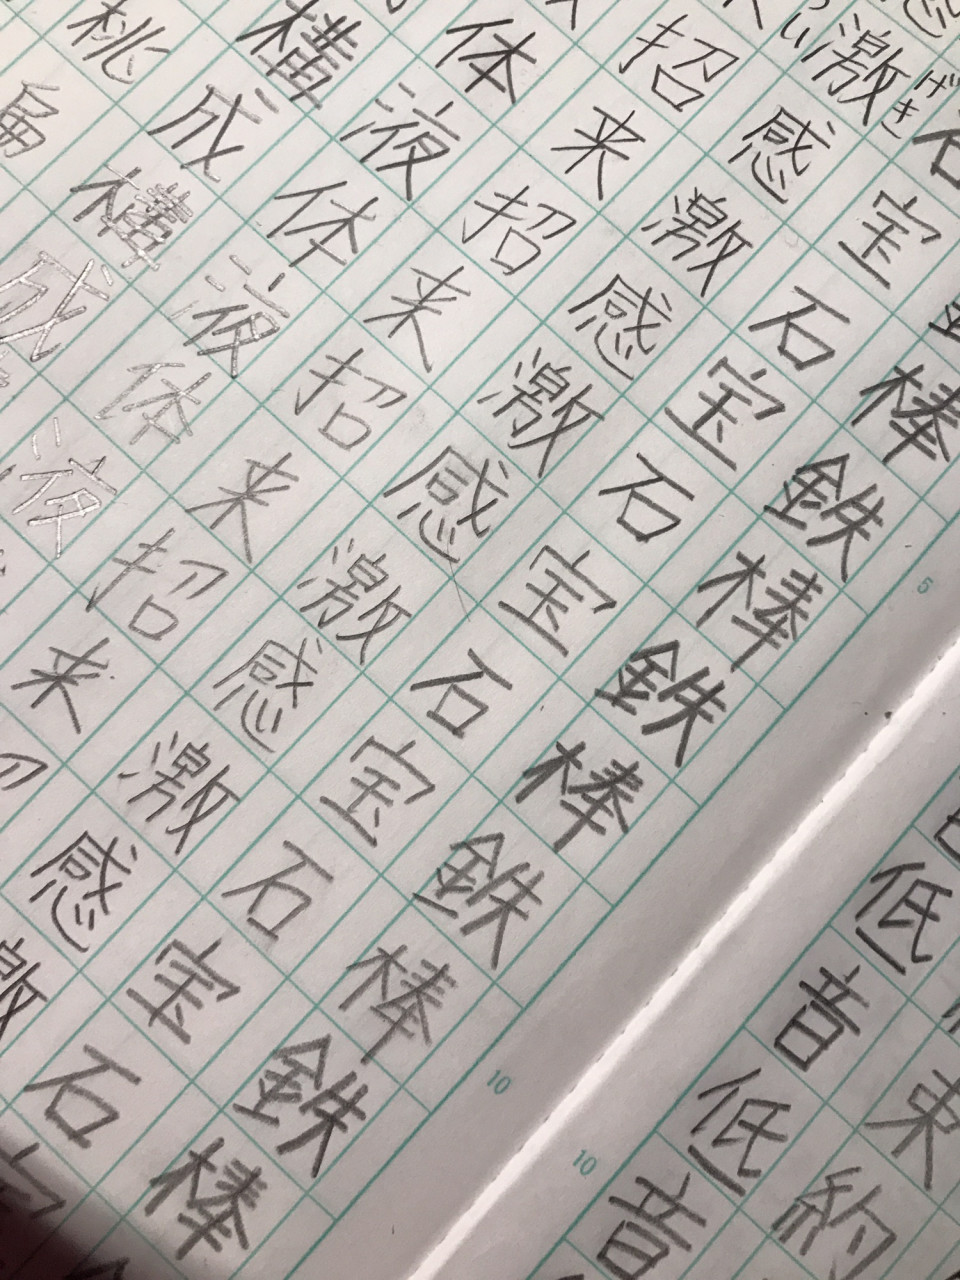 束約
低音低音
棒鉄棒鉄棒鉄棒鉄棒
石宝石宝石宝石宝石宝石
激感激感激感激感激感激
げき
招来招来招来招来
体液体液体液
横成横成
桃
5
10
10